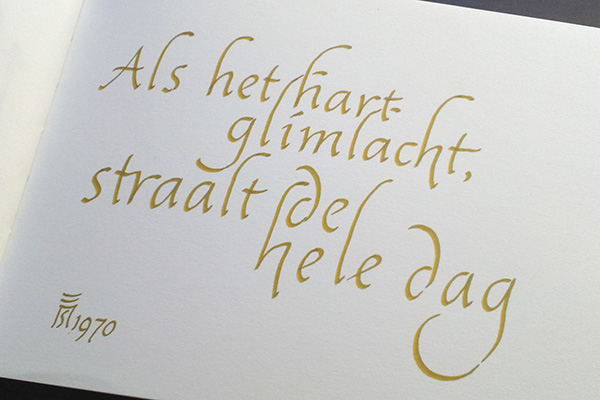 Als het hart
glimlacht,
straalt de
hele dag
1970